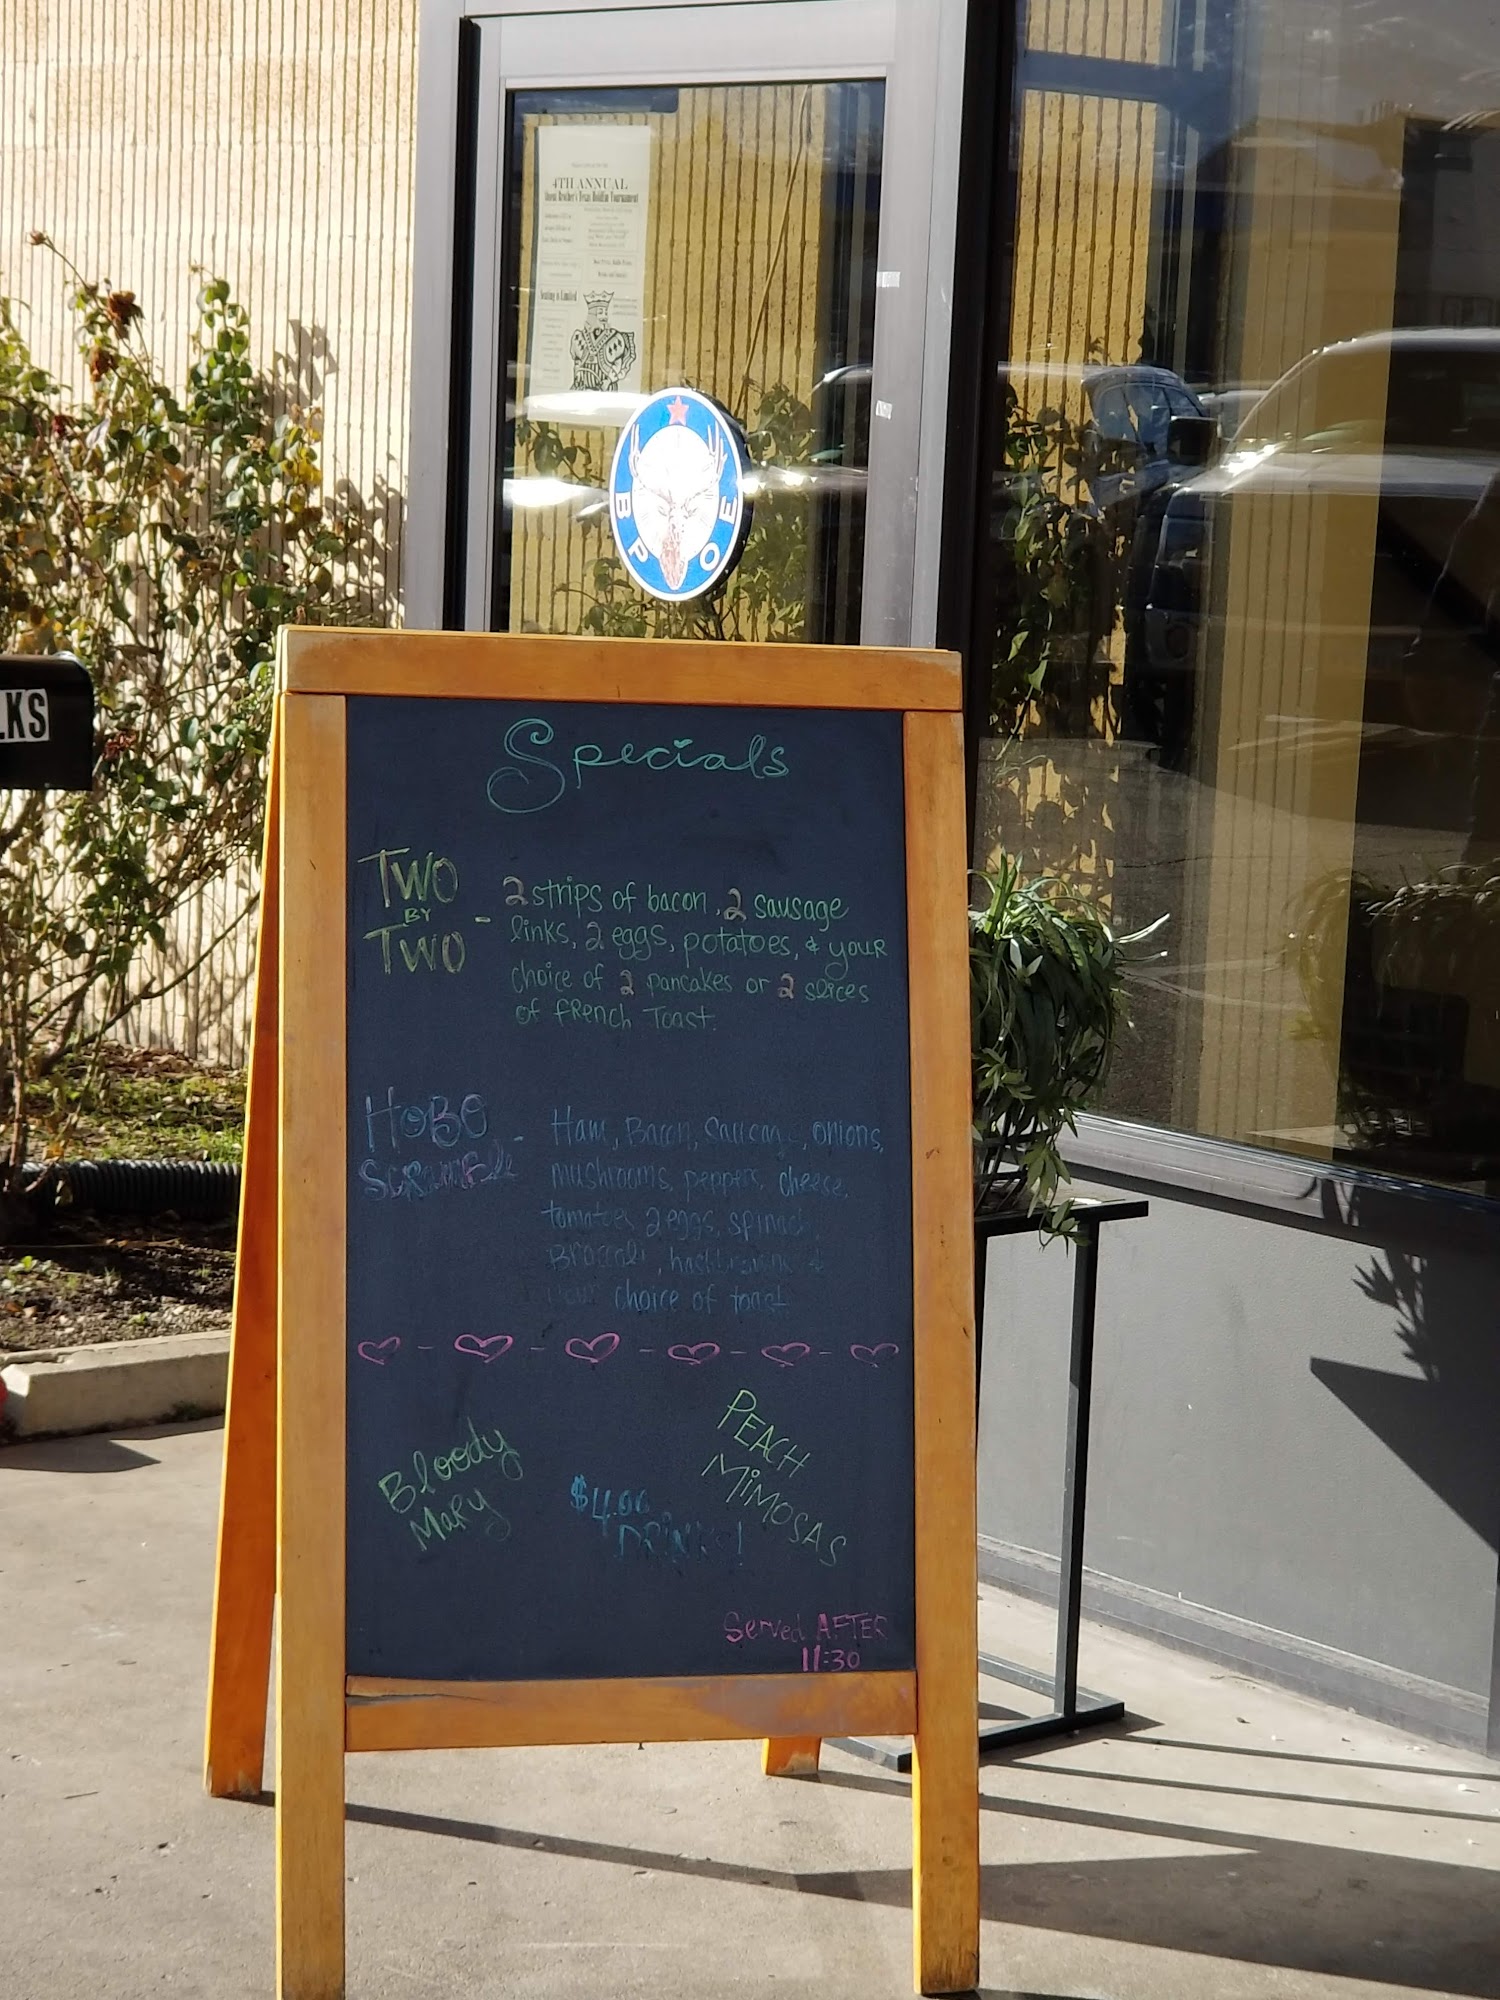 4TH ANNUAL
Brother's Texas Holdem Tournament
Seating is Limited
B P O E
LKS
Specials
TWO
BY
TWO -
2 strips of bacon, 2 sausage
links, 2 eggs, potatoes, & your
choice of 2 pancakes or 2 slices
of french Toast.
HOBO
SCRAMBLE -
Ham, Bacon, Sausage, onions,
mushrooms, peppers, cheese,
tomatoes, 2 eggs, spinach
Broccoli, hashbrowns &
your choice of toast
Bloody
Mary
$4.00
DRINKS!
PEACH
MiMOSAS
Served AFTER
11:30